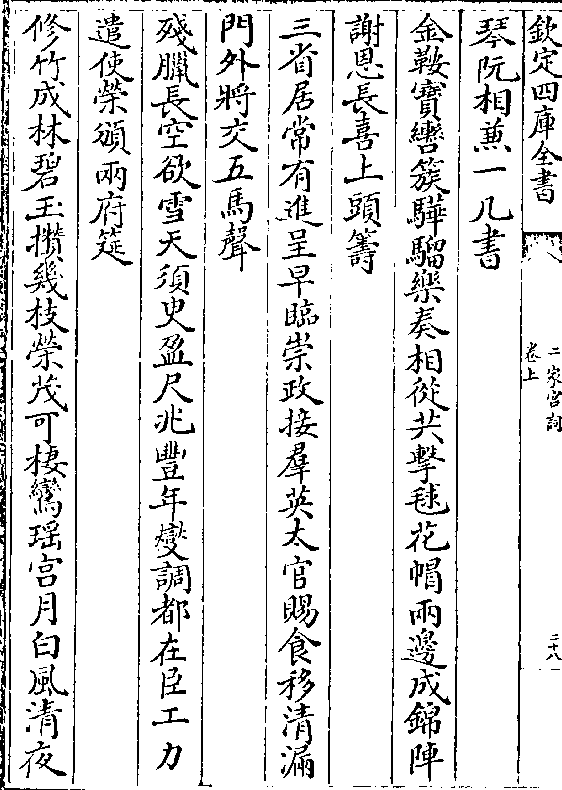 欽定四庫全書
二家宮詞
卷上
二十八
琴阮相兼一几書
金鞍寶轡簇驊騮樂奏相從共擊毬花帽兩邊成錦陣
謝恩長喜上頭籌
三省居常有進呈早臨崇政接羣英太官賜食移清漏
門外將交五馬聲
殘臘長空欲雪天須臾盈尺兆豐年燮調都在臣工力
遣使榮頒兩府筵
修竹成林碧玉攢幾枝榮茂可棲鸞瑶宫月白風清夜